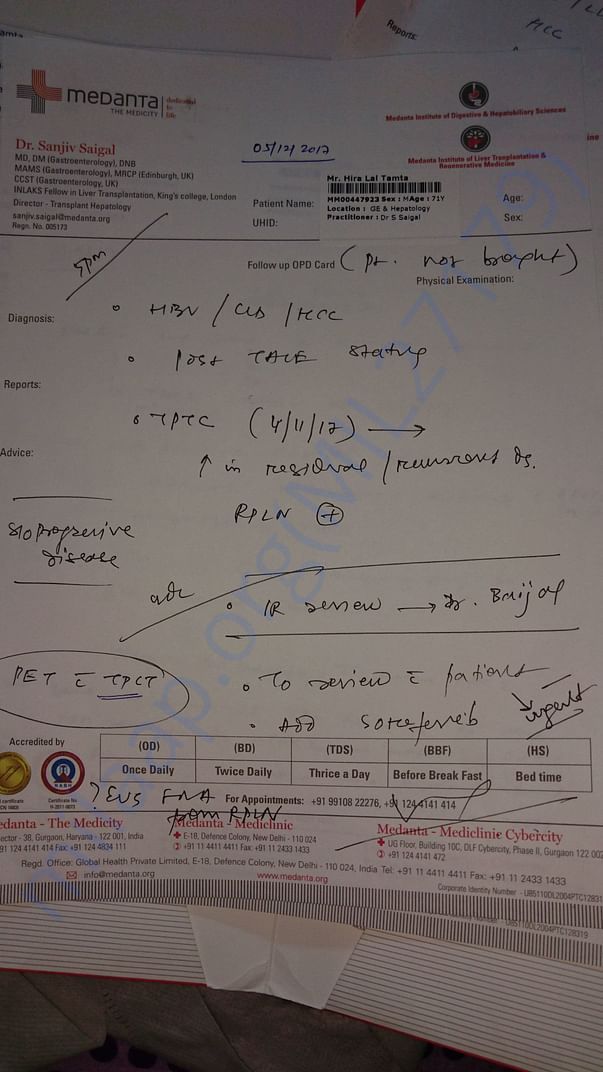 Reports:
HCC
medanta
THE MEDICITY
dedicated
to
life
Medanta Institute of Digestive & Hepatobiliary Sciences
Medanta Institute of Liver Transplantation &
Regenerative Medicine
ine
Dr. Sanjiv Saigal
MD, DM (Gastroenterology), DNB
MAMS (Gastroenterology), MRCP (Edinburgh, UK)
CCST (Gastroenterology, UK)
INLAKS Fellow in Liver Transplantation, King's college, London
Director - Transplant Hepatology
sanjiv.saigal@medanta.org
Regn. No. 005173
05/12/2017
Patient Name:
UHID:
Mr. Hira Lal Tamta
MM00447923 Sex : MAge : 71Y
Location : GE & Hepatology
Practitioner : Dr S Saigal
Age:
Sex:
5pm
Follow up OPD Card (pt. not brought)
Physical Examination:
Diagnosis:
• HBV / CLD / HCC
• Post TACE status
Reports:
• TPTC (4/11/17) →
Advice:
↑ in regional / recurrent ds.
RPLN +
S/o progressive
disease
adv
• IR review → Dr. Baijal
PET c̄ TPCT
• To review c̄ patient
urgent
• Add Sorafenib
Accredited by
(OD) (BD) (TDS) (BBF) (HS)
Once Daily Twice Daily Thrice a Day Before Break Fast Bed time
Certificate No
H-2011-0073
? EUS FNA
from RPLN
For Appointments: +91 99108 22276, +91 124 4141 414
edanta - The Medicity
ector - 38, Gurgaon, Haryana - 122 001, India
91 124 4141 414 Fax: +91 124 4834 111
Medanta - Mediclinic
E-18, Defence Colony, New Delhi - 110 024
+91 11 4411 4411 Fax: +91 11 2433 1433
Medanta - Mediclinic Cybercity
UG Floor, Building 10C, DLF Cybercity, Phase II, Gurgaon 122 002
+91 124 4141 472
Regd. Office: Global Health Private Limited, E-18, Defence Colony, New Delhi - 110 024, India Tel: +91 11 4411 4411 Fax: +91 11 2433 1433
info@medanta.org
www.medanta.org
Corporate Identity Number - U85110DL2004PTC128319
U85110DL2004PTC128319